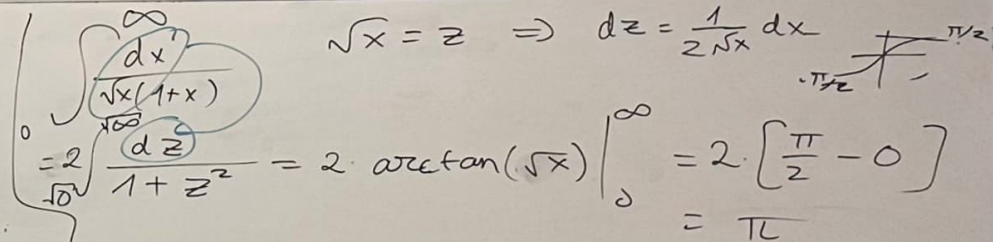 ∫₀^∞ dx / (√x(1+x))   √x = z ⇒ dz = 1/(2√x) dx   π/2   -π/2
= 2 ∫_{√0}^{√∞} dz / (1+z²) = 2 · arctan(√x) |₀^∞ = 2 · [π/2 - 0]
= π